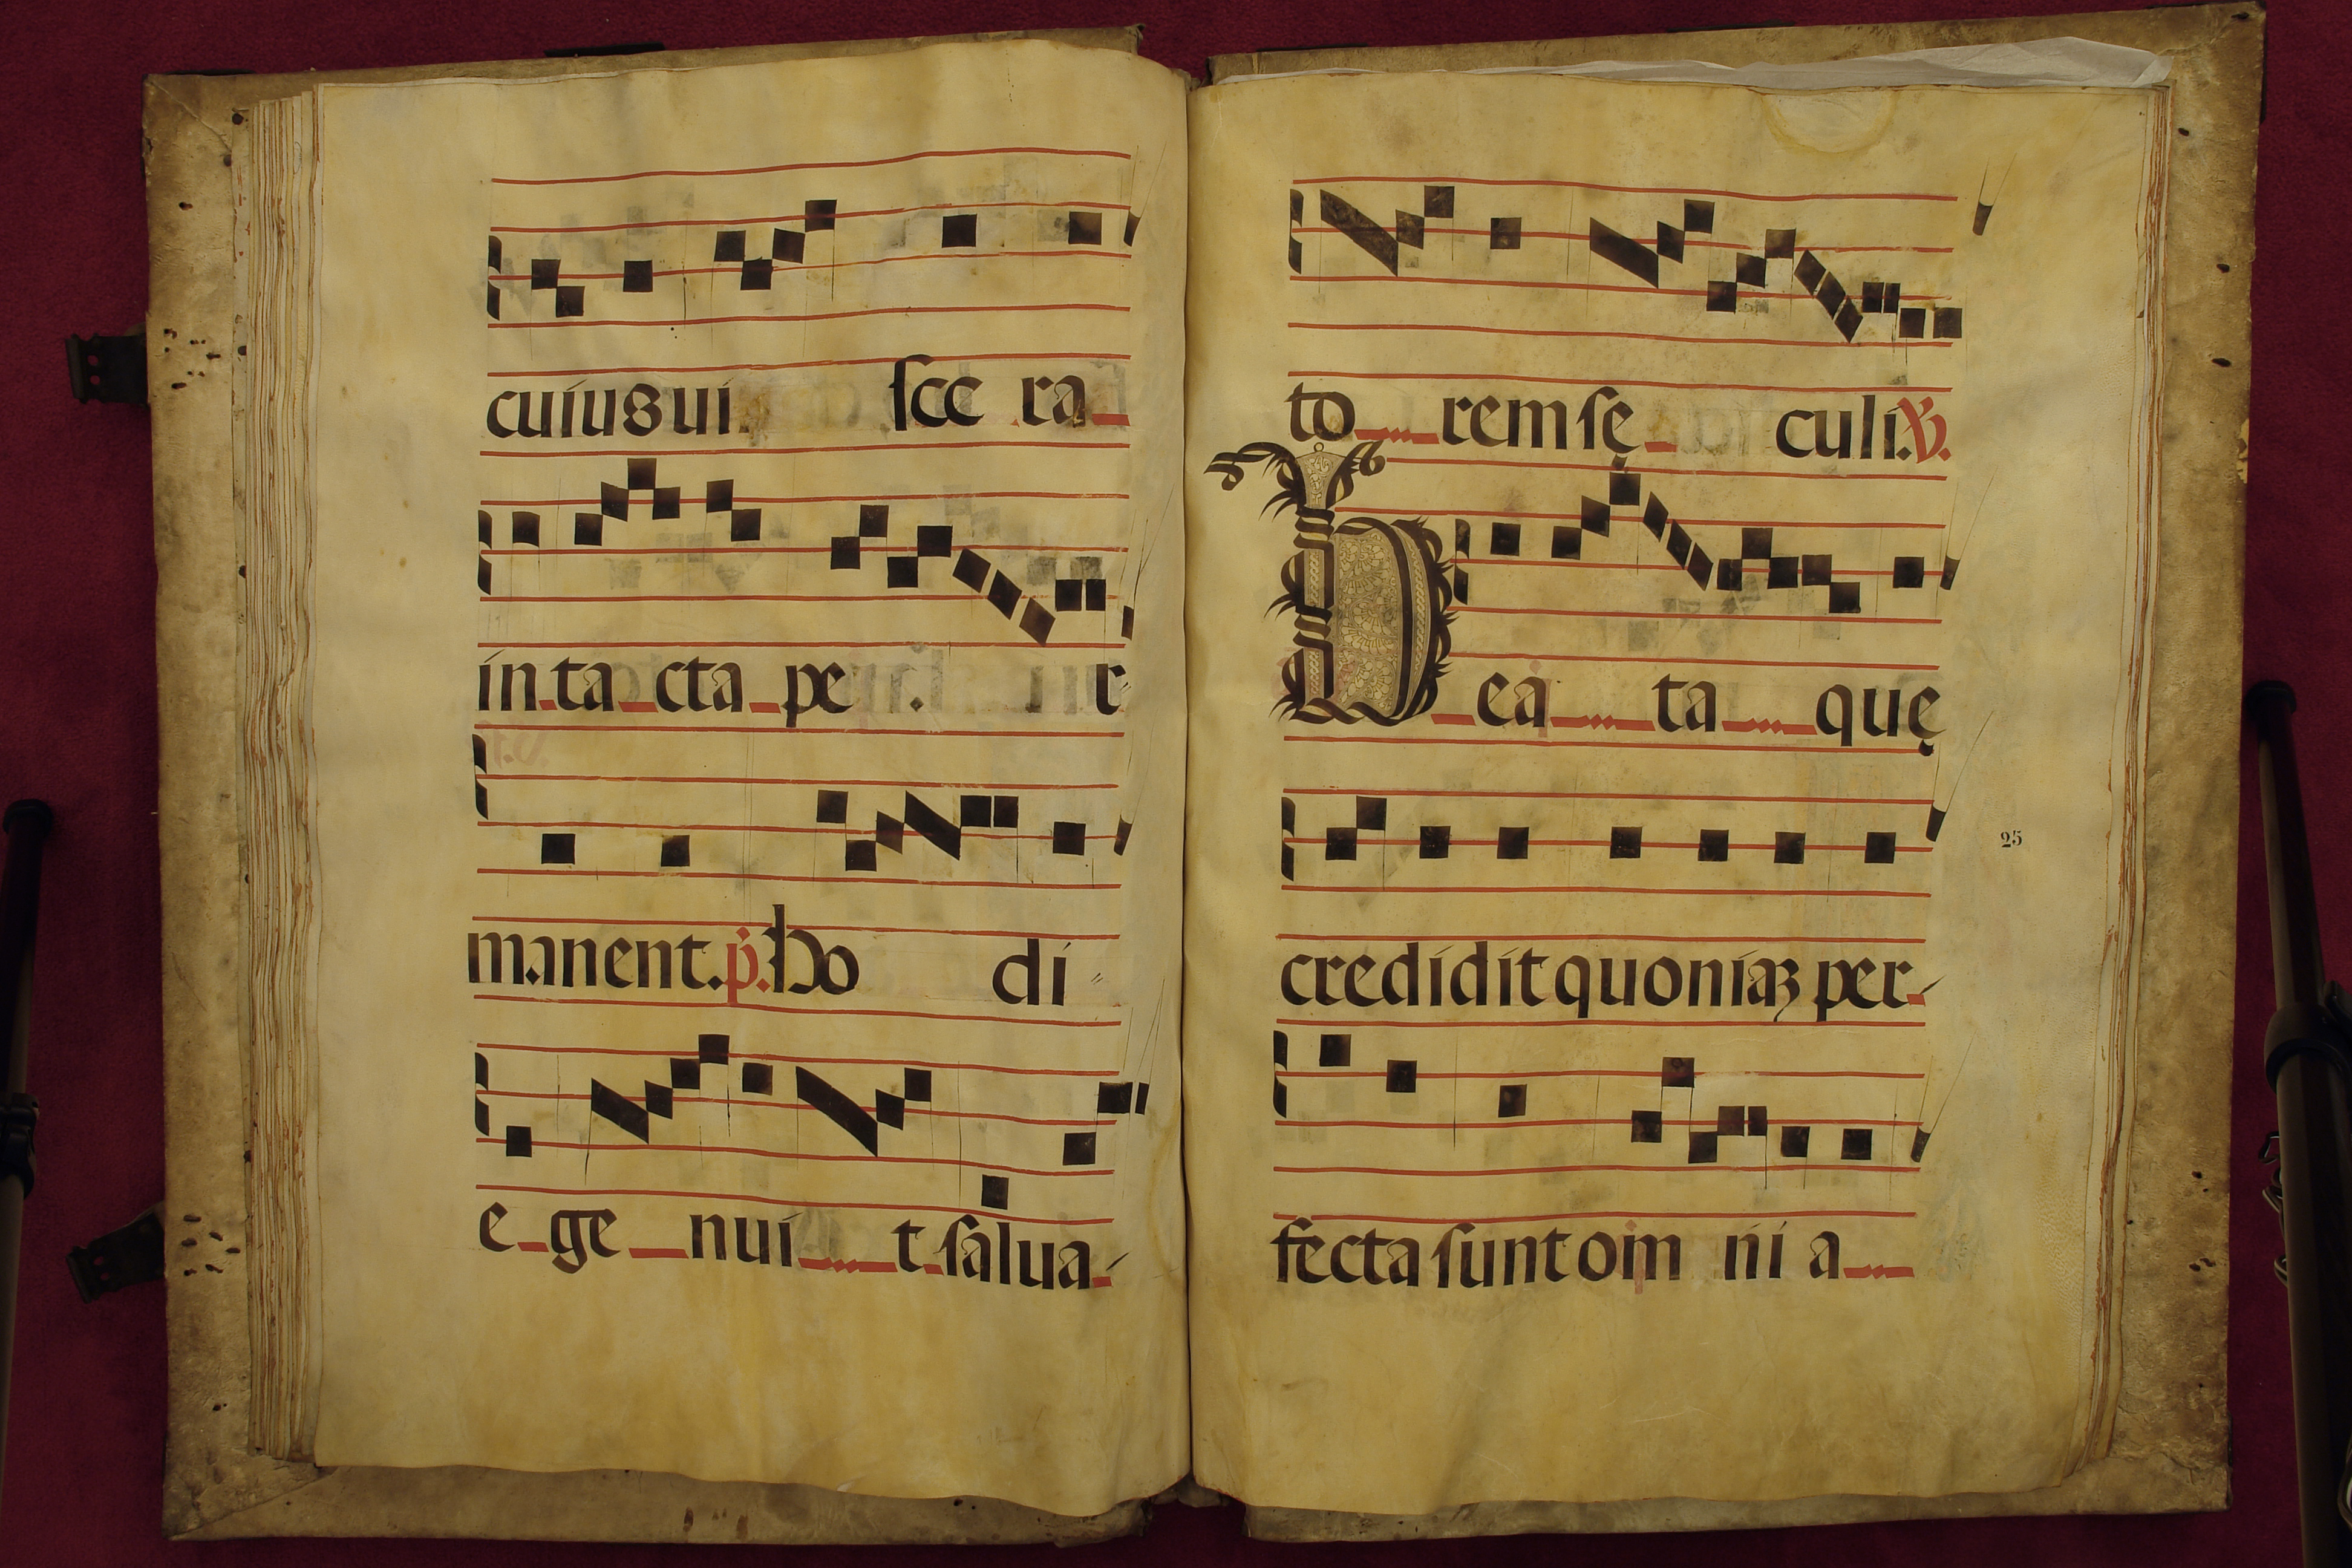 cuius ui sce ra
in ta cta pe r
manent. p. Ho di
e ge nui t salua
to rem sę culi. V.
B ea ta quę
credidit quoniaꝫ per
25
fecta sunt om ni a